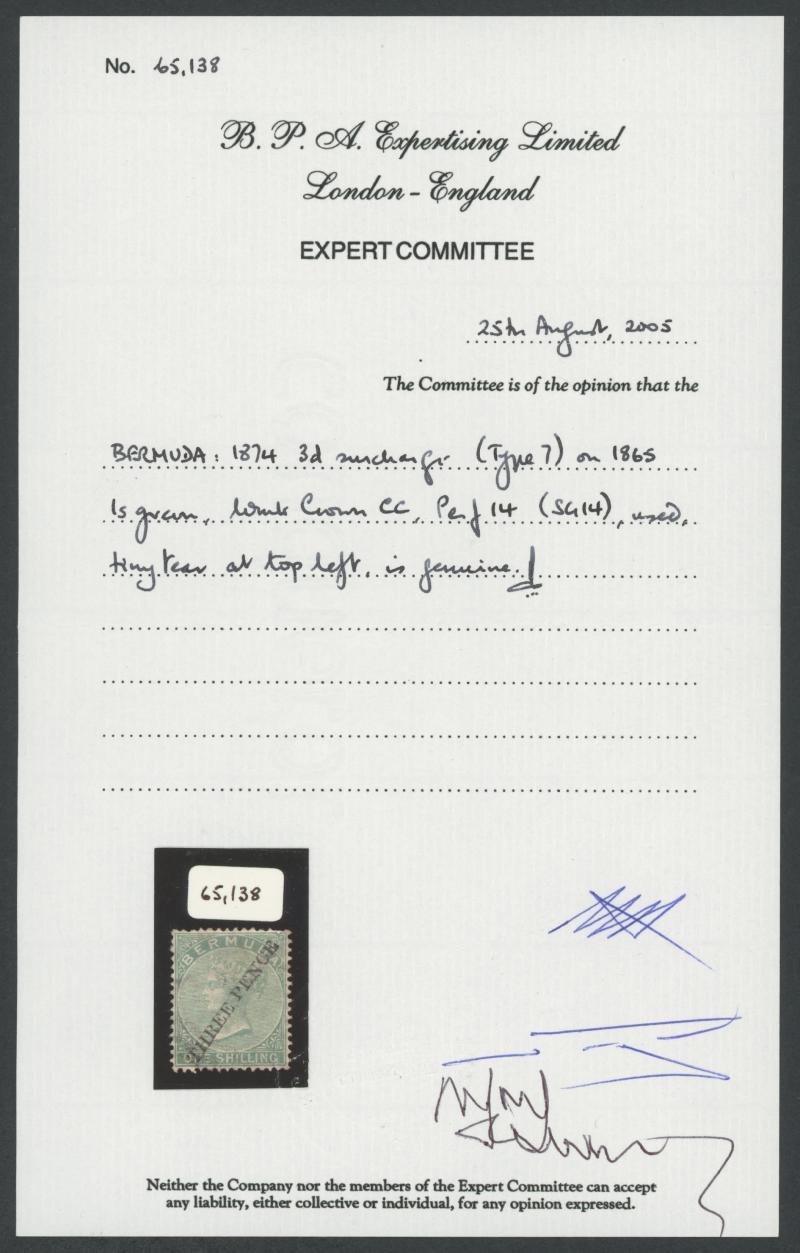 No. 65,138
B. P. A. Expertising Limited
London - England
EXPERT COMMITTEE
25th August, 2005
The Committee is of the opinion that the
BERMUDA: 1874 3d surcharge (Type 7) on 1865
1s green, Wmk Crown CC, Perf 14 (SG14), used,
tiny tear at top left, is genuine.
65,138
BERMUDA
THREE PENCE
ONE SHILLING
Neither the Company nor the members of the Expert Committee can accept
any liability, either collective or individual, for any opinion expressed.